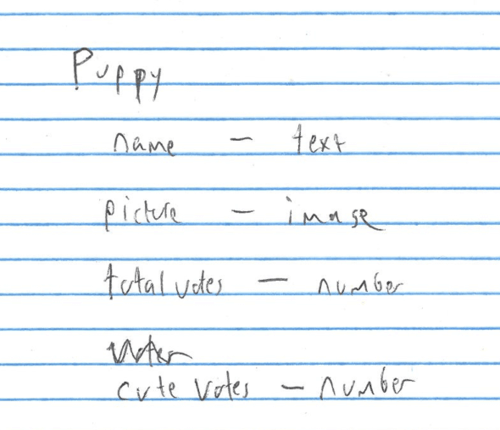 Puppy
name - text
picture - image
total votes - number
cute votes - number